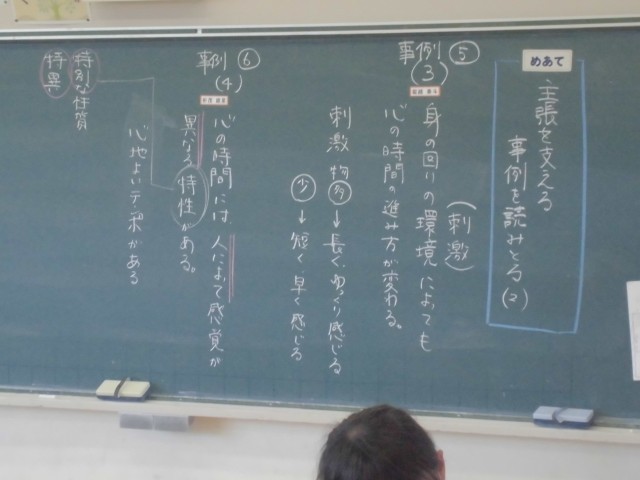 めあて
主張を支える
事例を読みとる(2)
事例(3) ⑤
身の回りの環境によっても
(刺激)
心の時間の進み方が変わる。
刺激物 多 → 長く、ゆっくり感じる
少 → 短く、早く感じる
事例(4) ⑥
心の時間には人によって感覚が
異なる特性がある。
心地よいテンポがある
特別な性質
特異